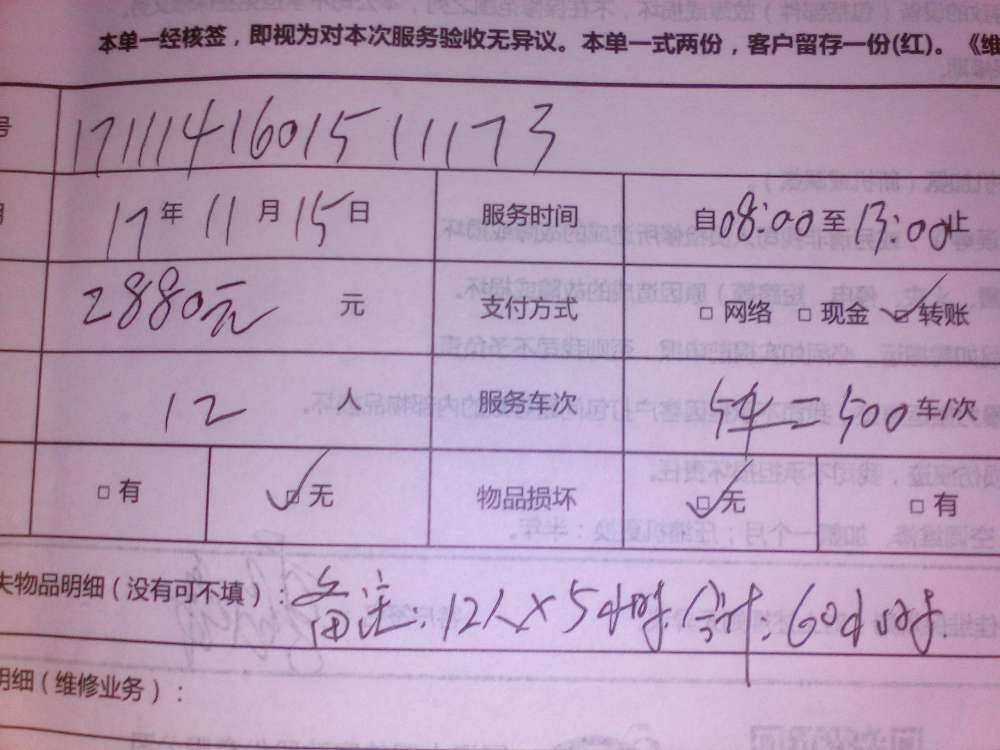 本单一经核签，即视为对本次服务验收无异议。本单一式两份，客户留存一份(红)。《维
号 171111416015 11173
17年 11月 15日 服务时间 自08:00至13:00止
2880元 元 支付方式 □ 网络 □ 现金 ☑ 转账
12 人 服务车次 = 500 车/次
□ 有 ☑ 无 物品损坏 ☑ 无 □ 有
失物品明细（没有可不填）：备注：12人×5小时.合计：60小时.
明细（维修业务）：